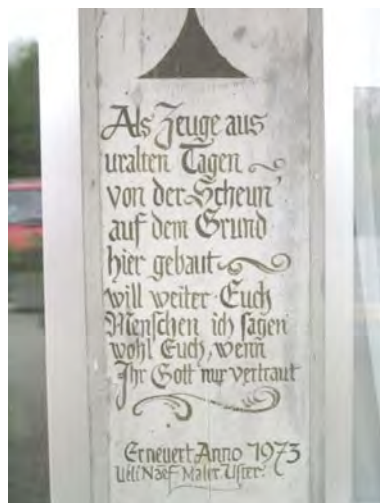 Als Zeuge aus
uralten Tagen
von der Scheun'
auf dem Grund
hier gebaut
will weiter Euch
Menschen ich sagen
wohl Euch, wenn
Ihr Gott nur vertraut
Erneuert Anno 1973
Ueli Naef Maler Uster.